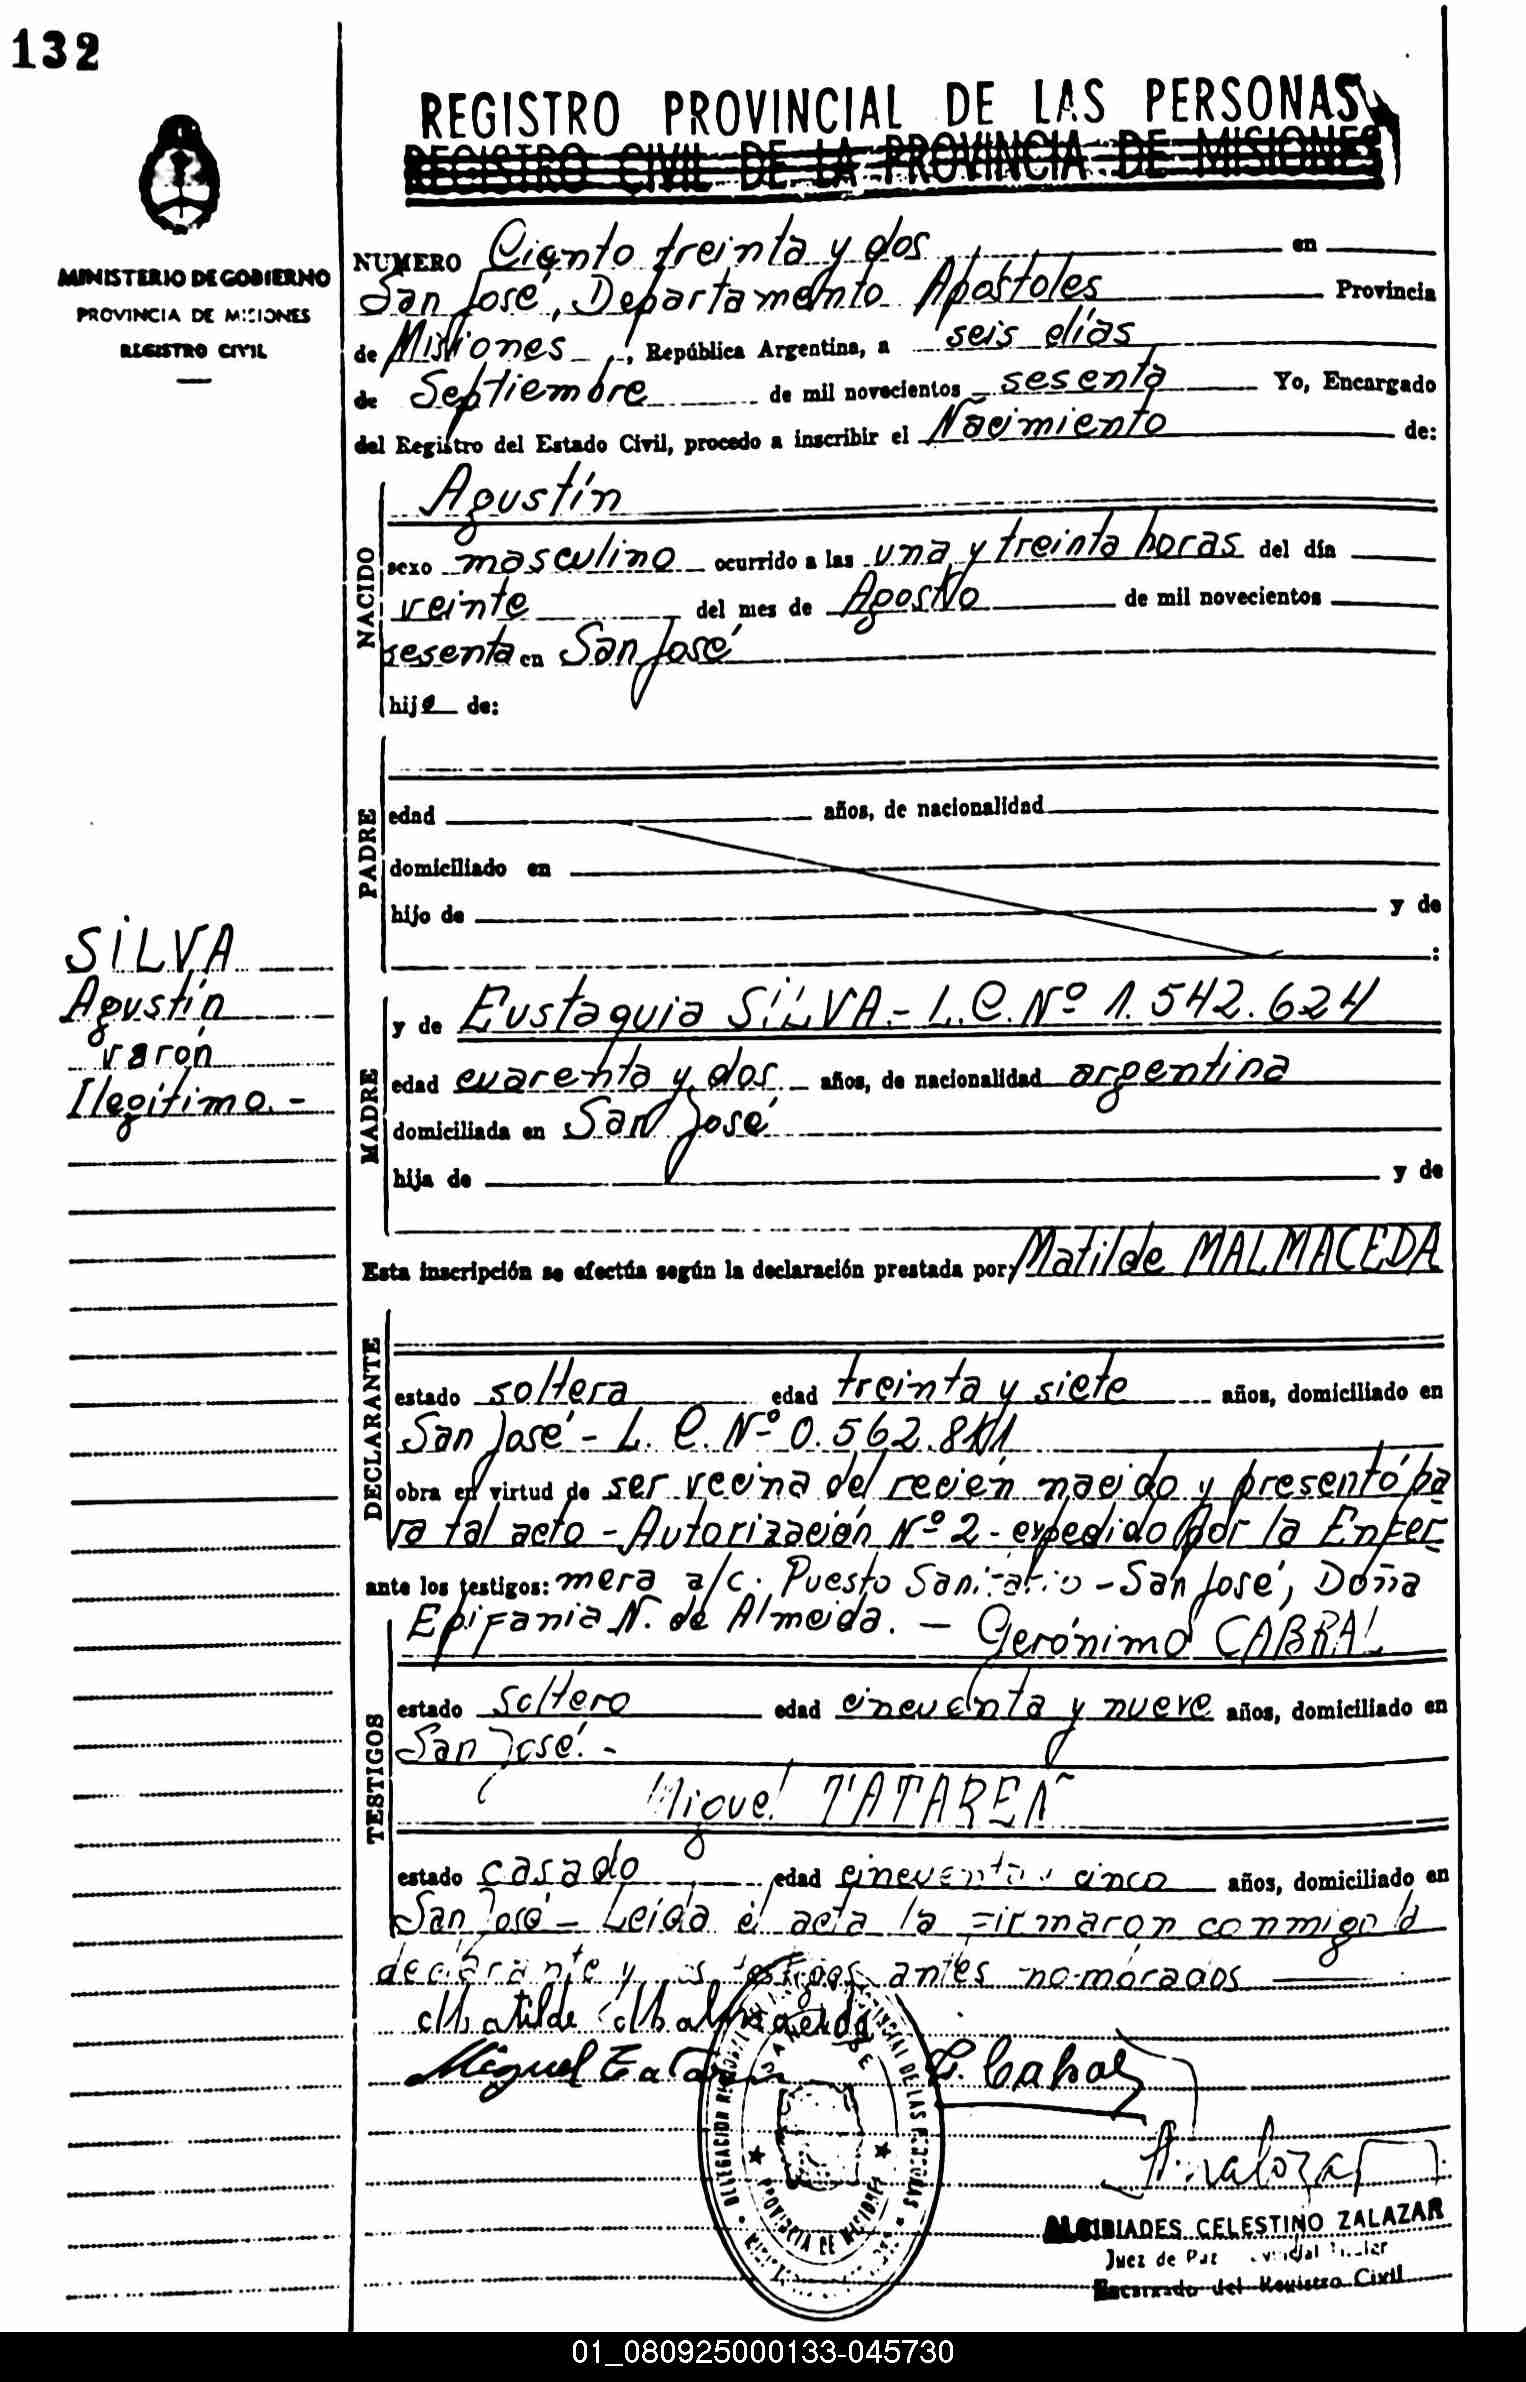 132
REGISTRO PROVINCIAL DE LAS PERSONAS
REGISTRO CIVIL DE LA PROVINCIA DE MISIONES
MINISTERIO DE GOBIERNO
PROVINCIA DE MISIONES
REGISTRO CIVIL
NUMERO Ciento treinta y dos en
San José, Departamento Apóstoles Provincia
de Misiones, República Argentina, a seis días
de Septiembre de mil novecientos sesenta Yo, Encargado
del Registro del Estado Civil, procedo a inscribir el Nacimiento de:
NACIDO
Agustín
sexo masculino ocurrido a las una y treinta horas del día
veinte del mes de Agosto de mil novecientos
sesenta en San José
hijo de:
PADRE
edad años, de nacionalidad
domiciliado en
hijo de y de
:
SILVA
Agustín
varón
Ilegítimo.-
MADRE
y de Eustaquia SILVA.- L.C. Nº 1.542.624
edad cuarenta y dos años, de nacionalidad argentina
domiciliada en San José
hija de y de
Esta inscripción se efectúa según la declaración prestada por: Matilde MALMACEDA
DECLARANTE
estado soltera edad treinta y siete años, domiciliado en
San José - L. C. Nº 0.562.
obra en virtud de ser vecina del recién nacido y presentó pa
ra tal acto - Autorización Nº 2 - expedido por la Enfer
ante los testigos: mera a/c. Puesto Sanitario - San José, Doña
Epifania N. de Almeida. - Gerónimo CABRAL
TESTIGOS
estado soltero edad cincuenta y nueve años, domiciliado en
San José.-
Miguel TATAREN
estado casado edad cincuenta y cinco años, domiciliado en
San José - Leída el acta la firmaron conmigo la
declarante y los testigos antes nombrados
Matilde Malmaceda
Miguel Tataren G. Cabral
PROVINCIA DE MISIONES
ALCIBIADES CELESTINO ZALAZAR
Juez de Paz
Encargado del Registro Civil
01_080925000133-045730